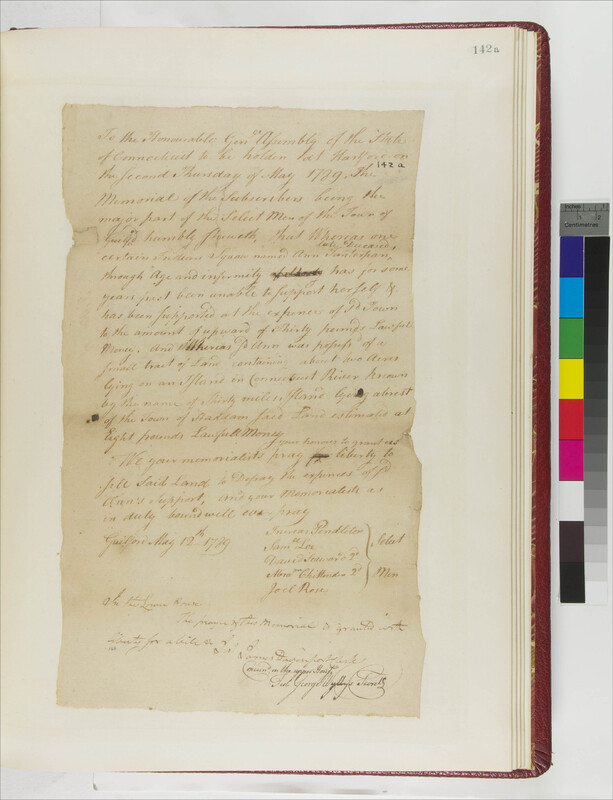 142a
To the Honourable Gen.ll Assembly of the State
of Connecticut to be holden at Hartford on
142 a
the Second Thursday of May 1789, The
Memorial of the Subscribers being the
major part of the Select Men of the Town of
Guilf.d humbly Sheweth, that Whereas one
lately Deceased,
certain Indian Squaw named Ann
through Age and infirmity has for some
years past been unable to support herself &
has been supported at the expences of s.d Town
to the amount of upward of Thirty pounds Lawful
Money. And Whereas s.d Ann was possess.d of a
Small tract of Land containing about two Acres
lying on an Island in Connecticut River known
by the name of Thirty miles Island lying abrest
of the Town of Haddam said Land estimated at
Eight pounds Lawfull Money
your honours to grant us
We your memorialists pray liberty to
sell said Land to Defray the expences of s.d
Ann's Support, and your Memorialists as
in duty bound will ever pray
Guilford May 12th 1789
Pendleton
Sam.ll Lee
David Seaward 2.d
Abra.m Chittenden 2.d
Joel Rose
Select
Men
In the Lower House
The prayer of this Memorial is granted with
liberty for a bill &c
Test James Davenport Clerk
Concur'd in the upper House
Test. George Wyllys Secret.y
Inches
Centimetres